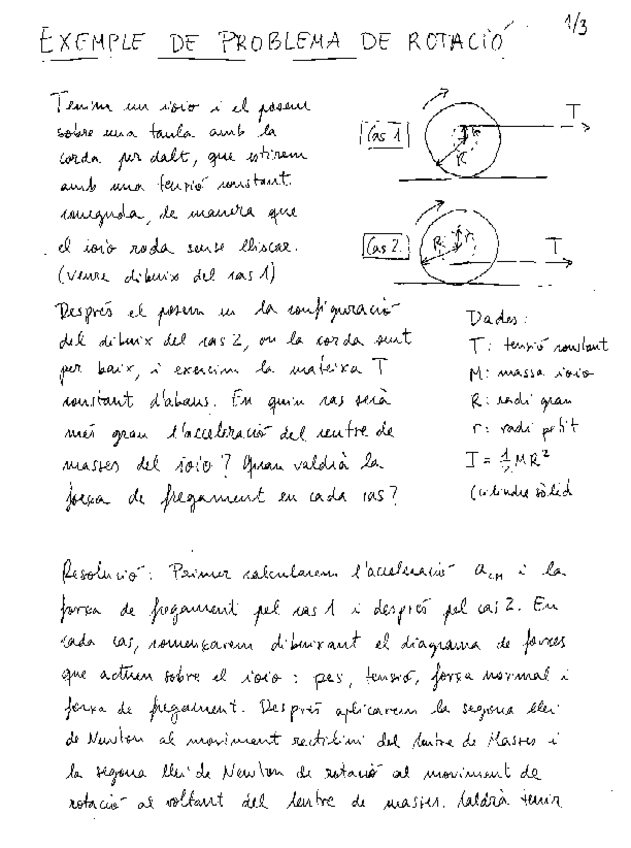 1/3
EXEMPLE DE PROBLEMA DE ROTACIÓ
Tenim un ioio i el posem
sobre una taula amb la
corda per dalt, que estirem
amb una tensió constant
coneguda, de manera que
el ioio roda sense lliscar.
(veure dibuix del cas 1)
Cas 1
R
r
T
Cas 2
R
r
T
Després el posem en la configuració
del dibuix del cas 2, on la corda surt
per baix, i exercim la mateixa T
constant d'abans. En quin cas serà
més gran l'acceleració del centre de
masses del ioio? Quan valdrà la
força de fregament en cada cas?
Dades:
T: tensió constant
M: massa ioio
R: radi gran
r: radi petit
I = 1/2 MR²
(cilindre sòlid
Resolució: Primer calcularem l'acceleració a_CM i la
força de fregament pel cas 1 i després pel cas 2. En
cada cas, començarem dibuixant el diagrama de forces
que actuen sobre el ioio: pes, tensió, força normal i
força de fregament. Després aplicarem la segona llei
de Newton al moviment rectilini del Centre de Masses i
la segona llei de Newton de rotació al moviment de
rotació al voltant del Centre de masses. Caldrà tenir